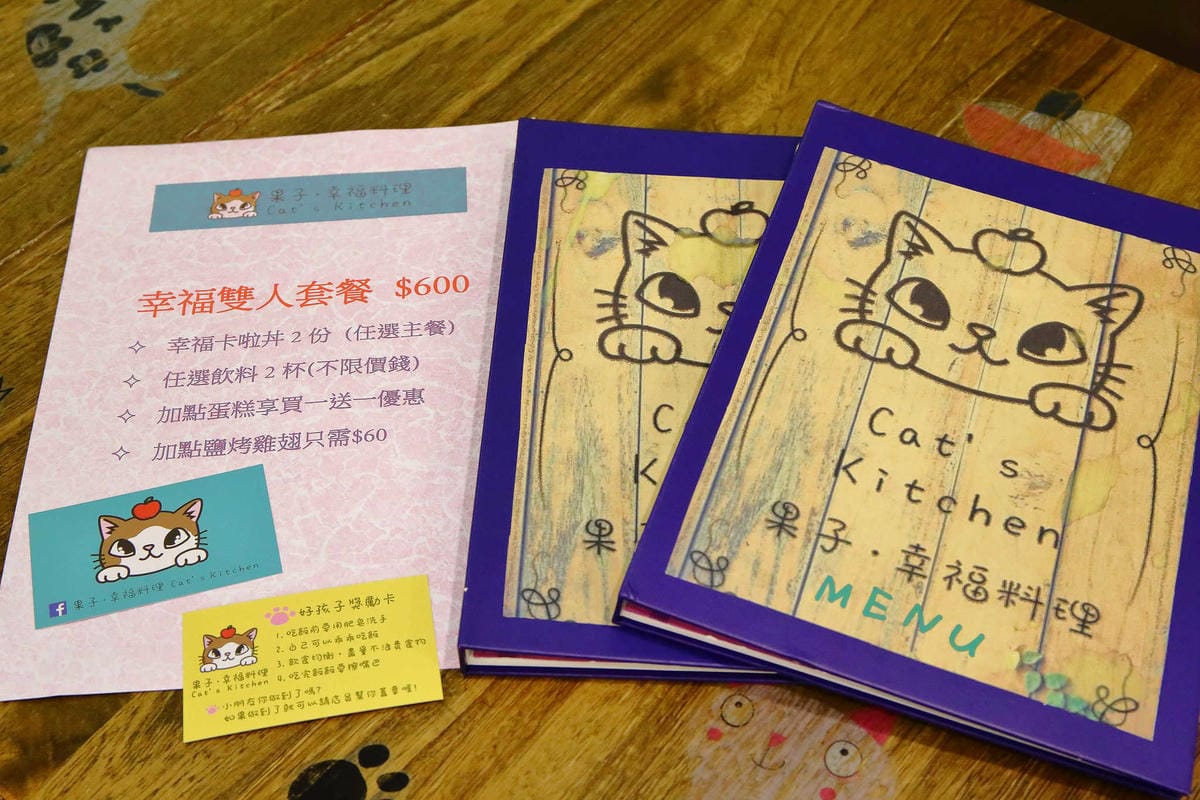 果子·幸福料理
Cat's Kitchen
幸福雙人套餐 $600
✧ 幸福卡啦丼 2 份 (任選主餐)
✧ 任選飲料 2 杯(不限價錢)
✧ 加點蛋糕享買一送一優惠
✧ 加點鹽烤雞翅只需$60
f 果子·幸福料理 Cat's Kitchen
好孩子獎勵卡
1. 吃飯前要用肥皂洗手
2. 自己可以乖乖吃飯
3. 飲食均衡，盡量不浪費食物
4. 吃完飯飯要擦嘴巴
果子·幸福料理
Cat's Kitchen
小朋友你做到了嗎?
如果做到了就可以請店員幫你蓋章喔!
C
K
果
Cat's
Kitchen
果子·幸福料理
MENU